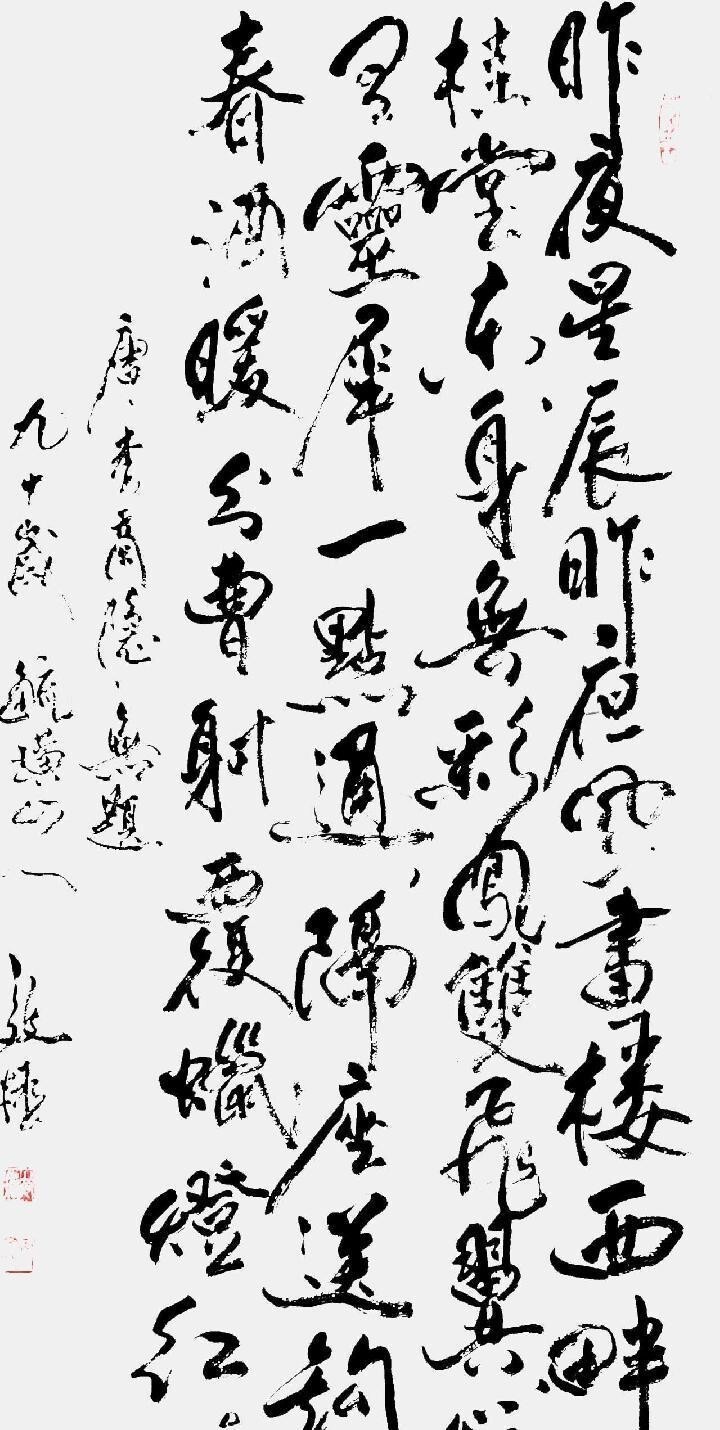 昨夜星辰昨夜風畫楼西畔
桂堂東身無彩鳳雙飛翼
有靈犀一點通隔座送鈎
春酒暖分曹射覆蠟燈紅
唐李商隱無題
九十歲